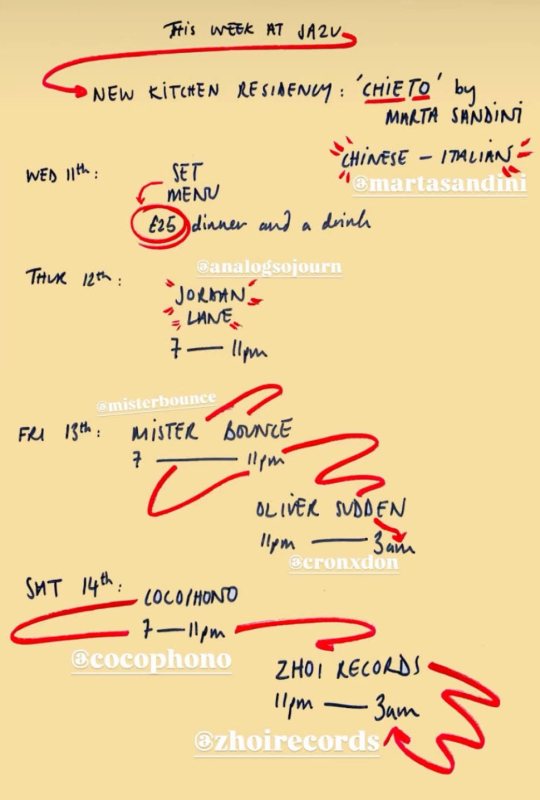 THIS WEEK AT JAZU
NEW KITCHEN RESIDENCY: 'CHIETO' by
MARTA SANDINI
CHINESE – ITALIAN
@martasandini
WED 11th:
SET
MENU
£25 dinner and a drink
@analogsojourn
THUR 12th:
JORDAN
LANE
7 — 11pm
@misterbounce
FRI 13th: MISTER BOUNCE
7 — 11pm
OLIVER SUDDEN
11pm — 3am
@cronxdon
SAT 14th:
COCOPHONO
7 — 11pm
@cocophono
ZHOI RECORDS
11pm — 3am
@zhoirecords